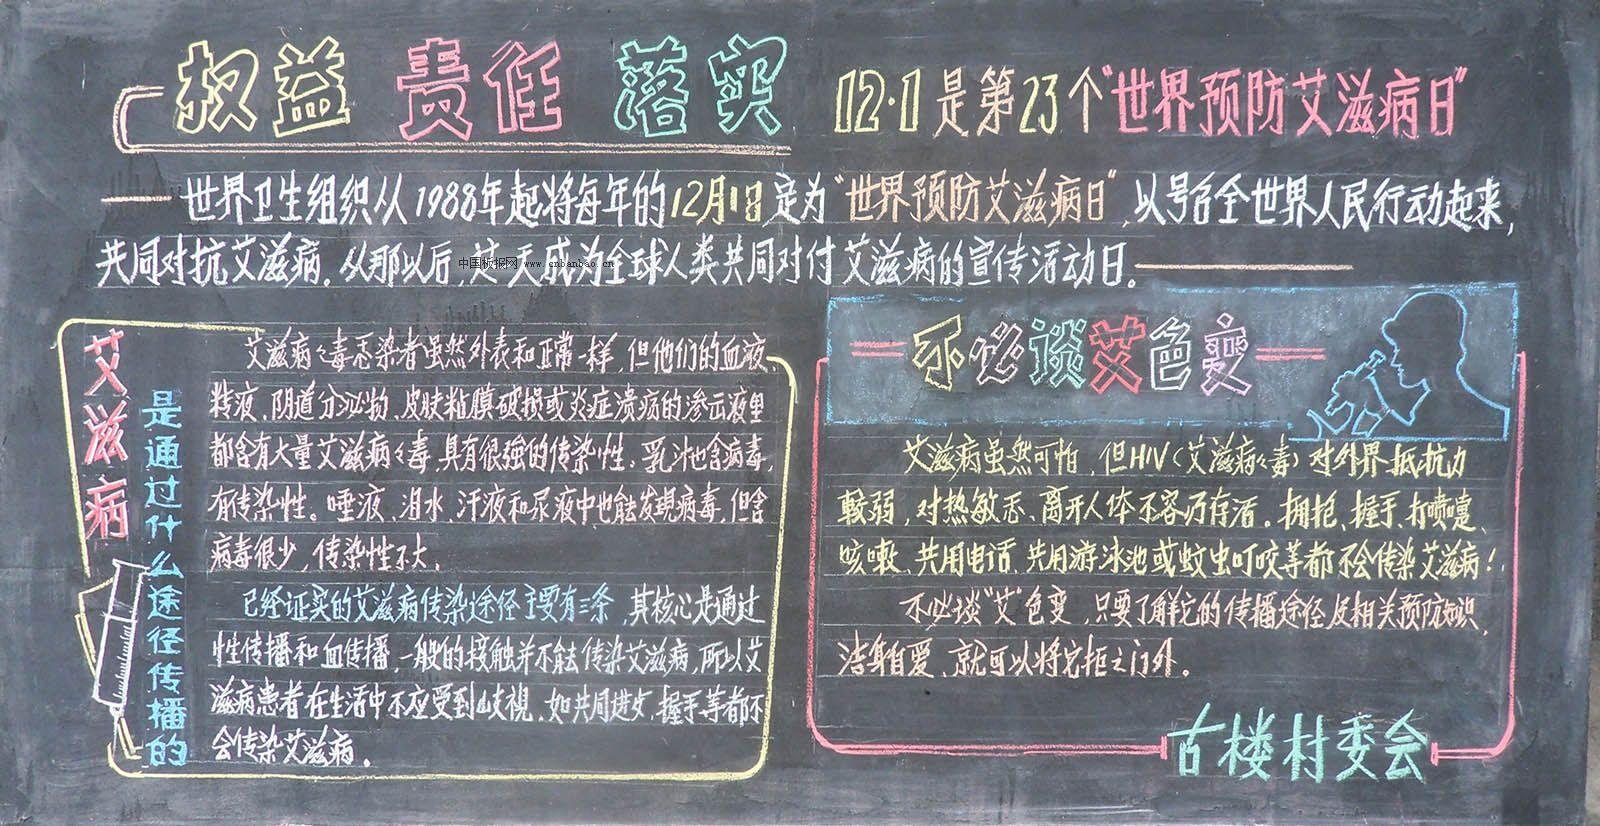 权益 责任 落实 12·1是第23个“世界预防艾滋病日”
世界卫生组织从1988年起将每年的12月1日定为“世界预防艾滋病日”,以号召全世界人民行动起来,
共同对抗艾滋病.从那以后,这天成为全球人类共同对付艾滋病的宣传活动日。
中国板报网 www.cnbanbao.cn
艾滋病
是通过什么途径传播的
艾滋病々毒感染者虽然外表和正常一样,但他们的血液、
精液、阴道分泌物、皮肤粘膜破损或炎症溃疡的渗出液里
都含有大量艾滋病々毒,具有很强的传染性;乳汁也含病毒,
有传染性。唾液、泪水、汗液和尿液中也能发现病毒,但含
病毒很少,传染性不大.
已经证实的艾滋病传染途径主要有三条,其核心是通过
性传播和血传播,一般的接触并不能传染艾滋病,所以艾
滋病患者在生活中不应受到歧視.如共同进歺,握手等都不
会传染艾滋病.
不必谈艾色变
艾滋病虽然可怕,但HIV(艾滋病々毒)对外界抵抗力
较弱,对热敏感、离开人体不容乃存活.拥抱、握手、打喷嚏、
咳嗽、共用电话、共用游泳池或蚊虫叮咬等都不会传染艾滋病!
不必谈“艾”色变,只要了解它的传播途径及相关预防知识,
洁身自爱,就可以将它拒之门外。
古楼村委会